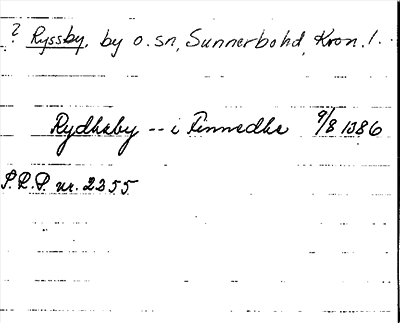 ? Ryssby, by o. sn, Sunnerbo hd, Kron. l.
Rydhæby -- i Finnedhe 9/8 1386
S.R.P. nr. 2355.